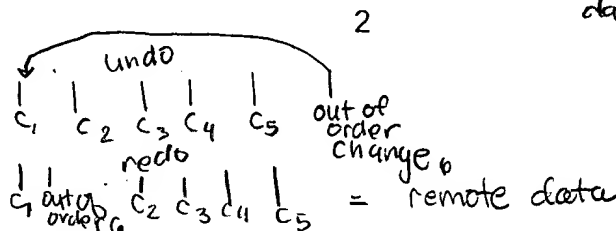 2 da
undo
C1 C2 C3 C4 C5 out of
order
change 6
redo
C1 out of order 6 C2 C3 C4 C5 = remote data